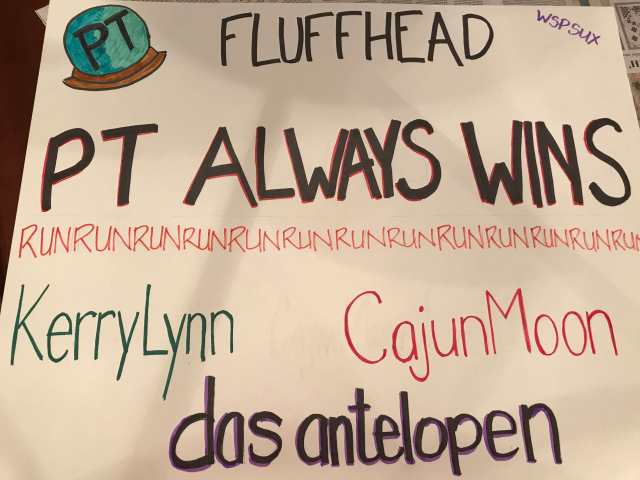 PT FLUFFHEAD WSPSUX
PT ALWAYS WINS
RUNRUNRUNRUNRUNRUNRUNRUNRUNRUNRUNRUN
KerryLynn CajunMoon
das antelopen